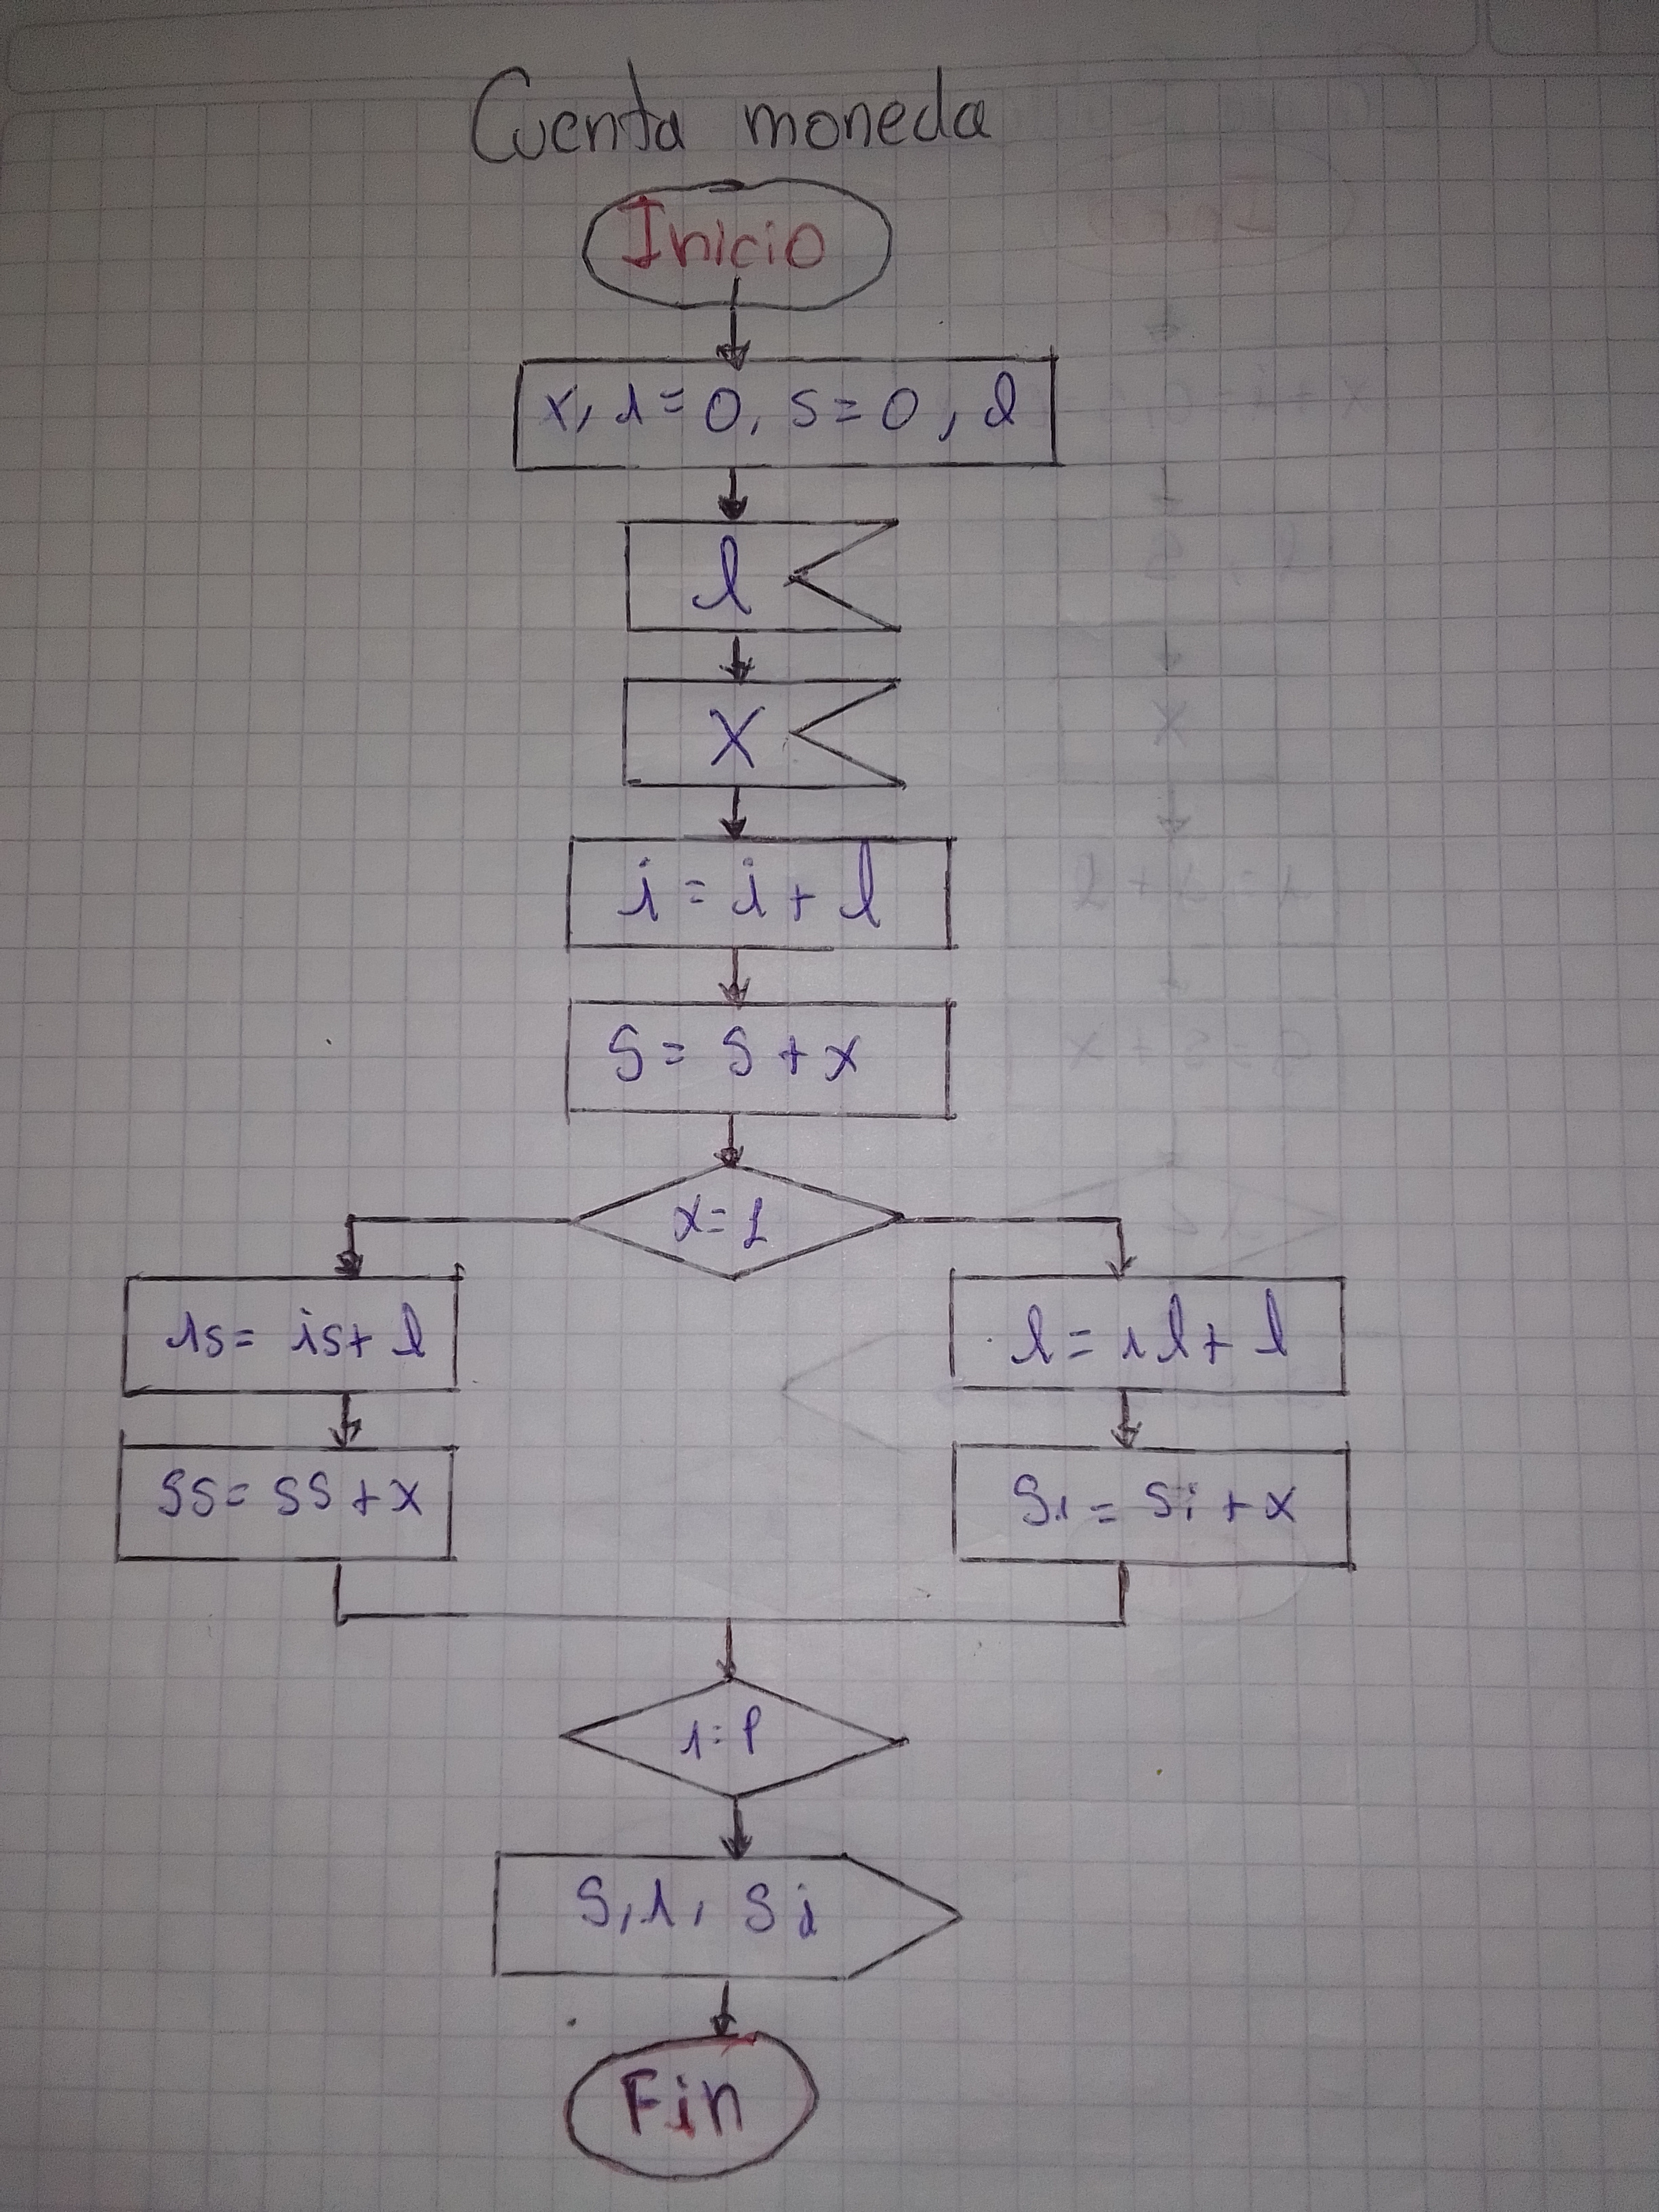 Cuenta moneda
Inicio
x, i=0, s=0, l
l
X
i = i + l
S = S + x
x=1
is= is+ l
l= il+ l
SS= SS +x
Si = Si +x
i=P
S, i, Si
Fin